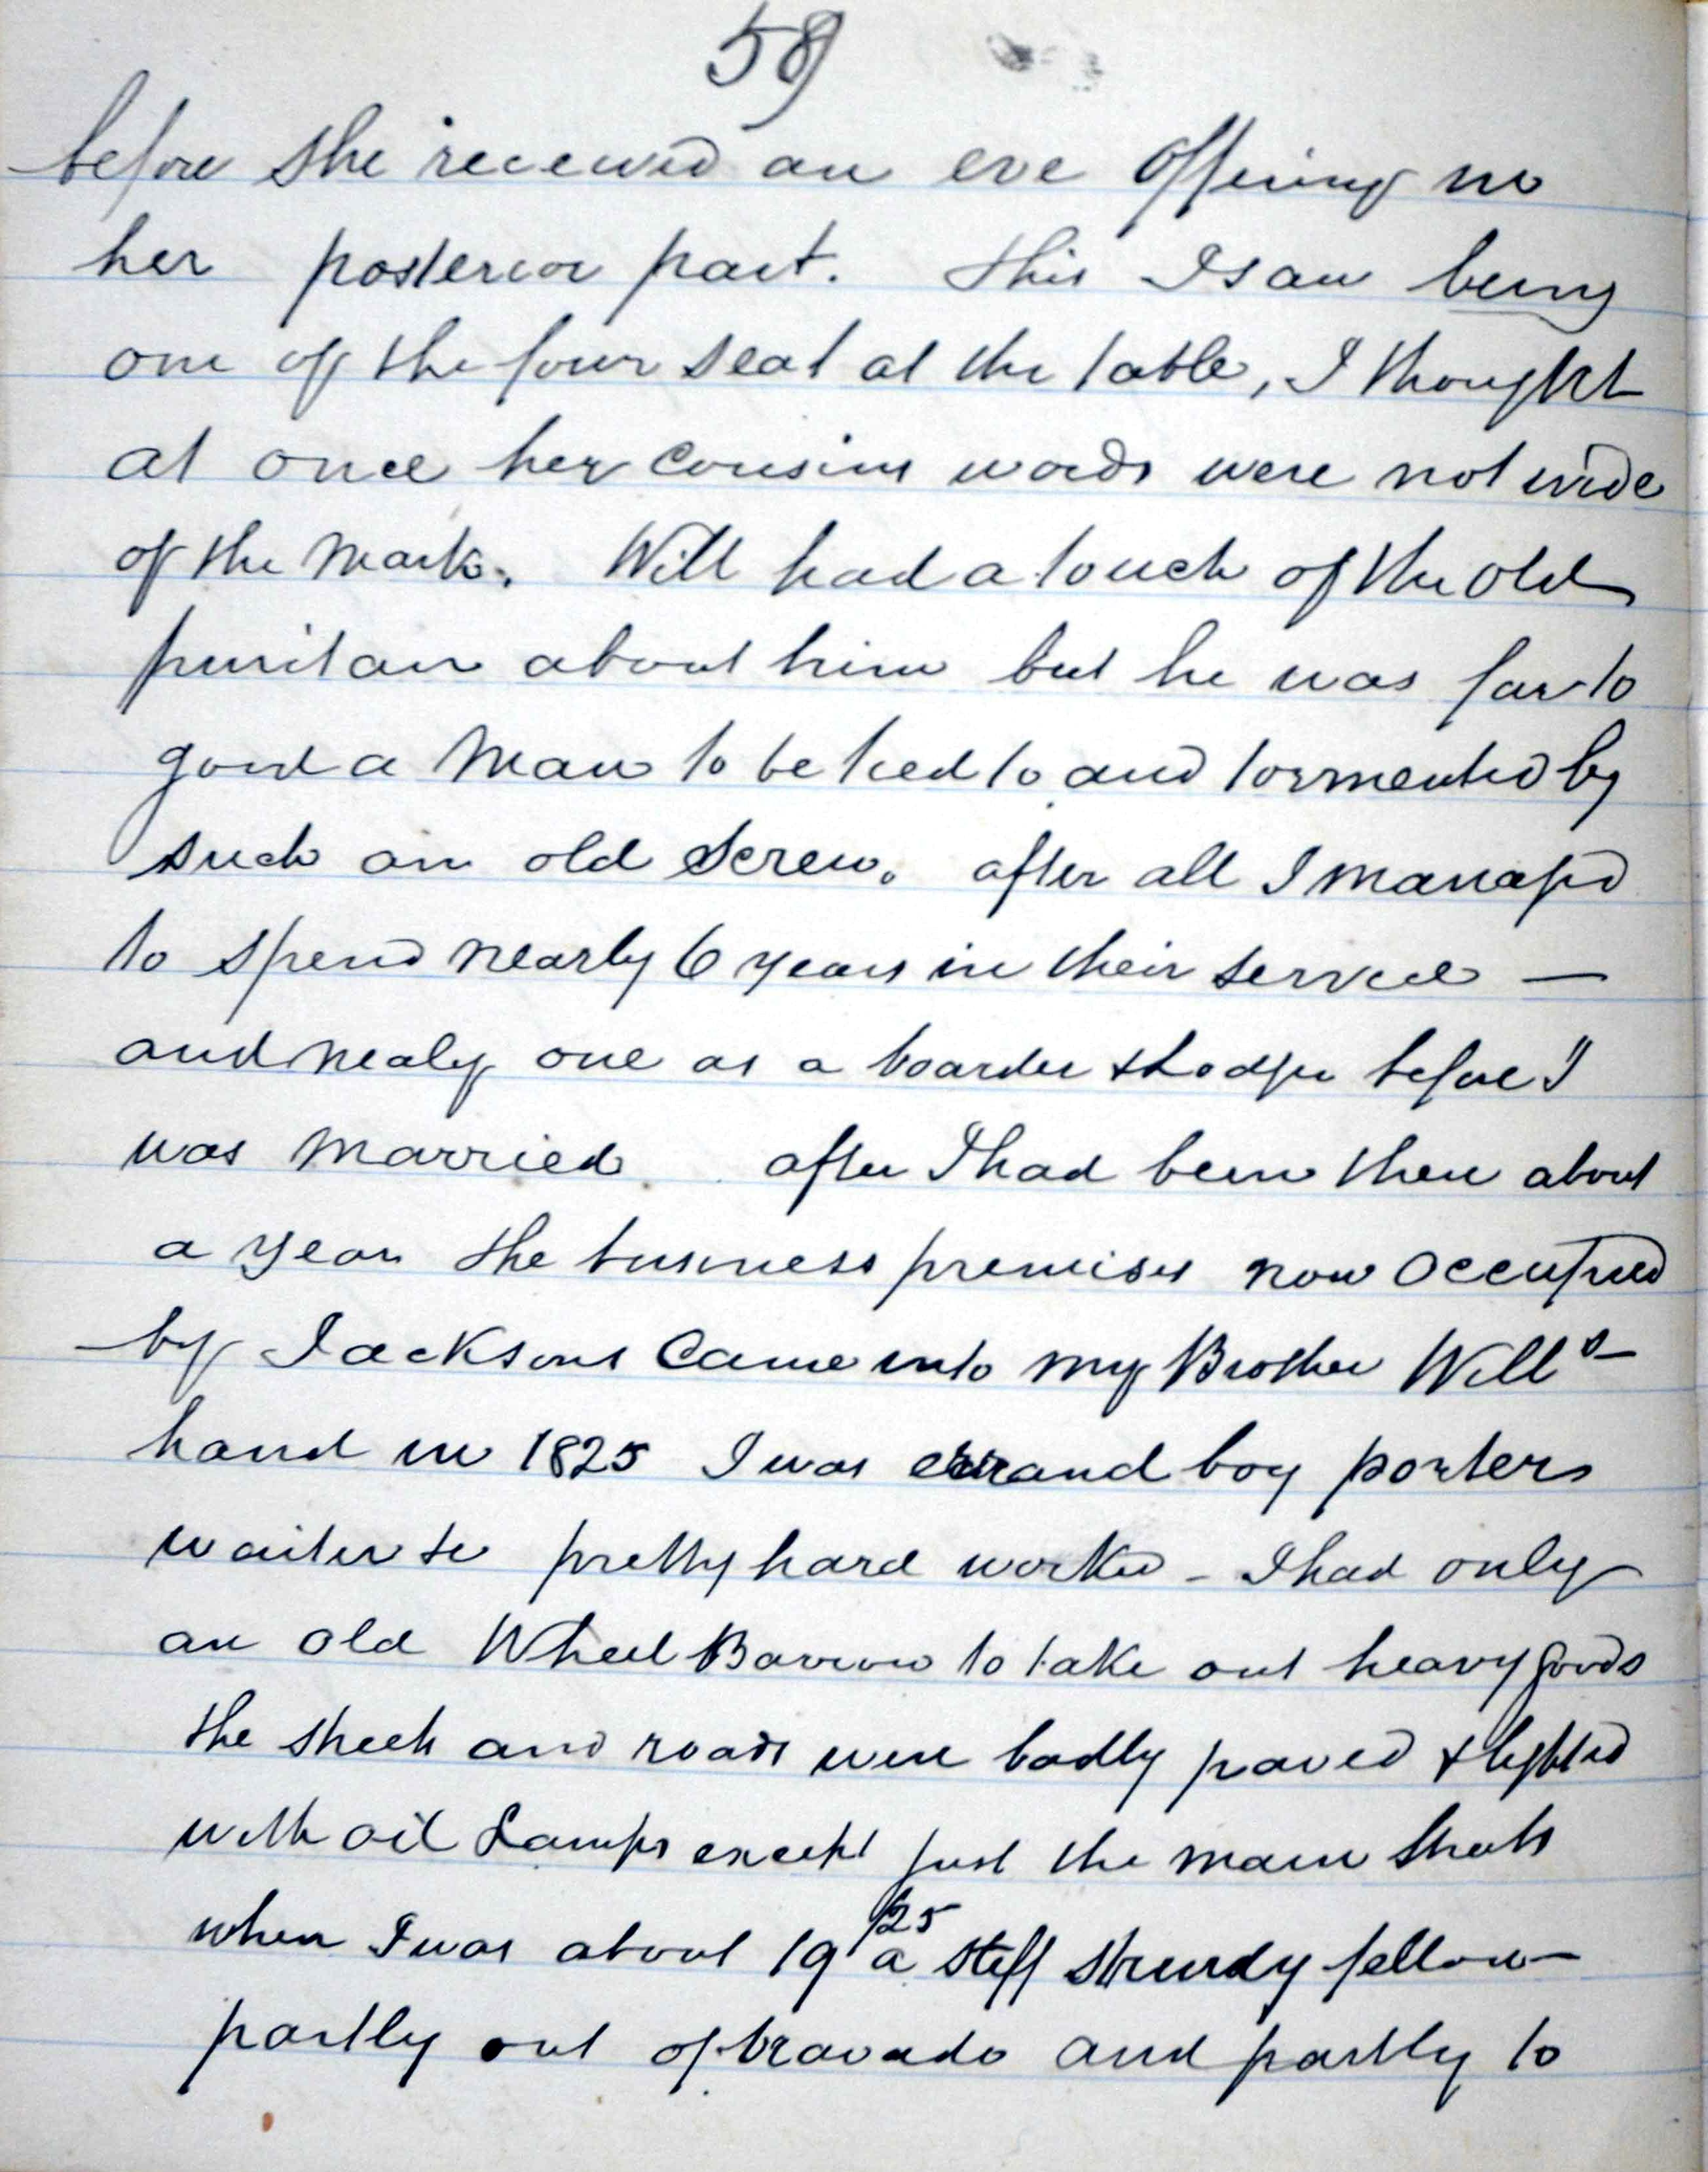 58
before she received an eve offering in
her posterior part. this I saw being
one of the four seat at the table, I thought
at once her cousins words were not wide
of the Mark. Will had a touch of the old
puritan about him but he was far to
good a Man to be tied to and tormented by
such an old Screw. after all I managed
to spend nearly 6 years in their service —
and nealy one as a boarder & Lodger before I
was Married after I had been there about
a year the business premises now occupied
by Jacksons Came into my Brother Will's
hand in 1825 I was errand boy porters
waiter &c pretty hard worked - I had only
an old Wheel Barrow to take out heavy goods
the streets and roads were badly paved & lighted
with oil Lamps except just the main streets
/25
when I was about 19 a stiff sturdy fellow
partly out of bravado and partly to